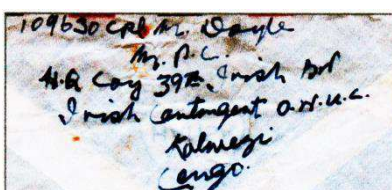 109630 CPL M. Doyle
M.P.C.
H.Q Coy 39th Irish Bn
Irish Contingent O.N.U.C.
Kolwezi
Congo.